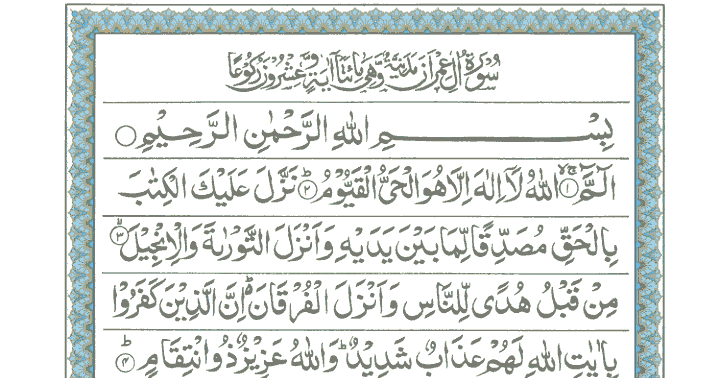 سُوْرَةُ اٰلِ عِمْرٰنَ مَدَنِيَّةٌ وَّهِيَ مِائَتَا اٰيَةٍ وَّعِشْرُوْنَ رُكُوْعًا
بِسْمِ اللهِ الرَّحْمٰنِ الرَّحِيْمِ
الٓمَّٓ ۙ‏﴿۱﴾ اللهُ لَاۤ اِلٰهَ اِلَّا هُوَ الْحَيُّ الْقَيُّوْمُ ؕ‏﴿۲﴾ نَزَّلَ عَلَيْكَ الْكِتٰبَ
بِالْحَقِّ مُصَدِّقًا لِّمَا بَيْنَ يَدَيْهِ وَاَنْزَلَ التَّوْرٰىةَ وَالْاِنْجِيْلَ ۙ‏﴿۳﴾
مِنْ قَبْلُ هُدًى لِّلنَّاسِ وَاَنْزَلَ الْفُرْقَانَ ؕ اِنَّ الَّذِيْنَ كَفَرُوْا
بِاٰيٰتِ اللهِ لَهُمْ عَذَابٌ شَدِيْدٌ ؕ وَاللهُ عَزِيْزٌ ذُو انْتِقَامٍ ؕ‏﴿۴﴾